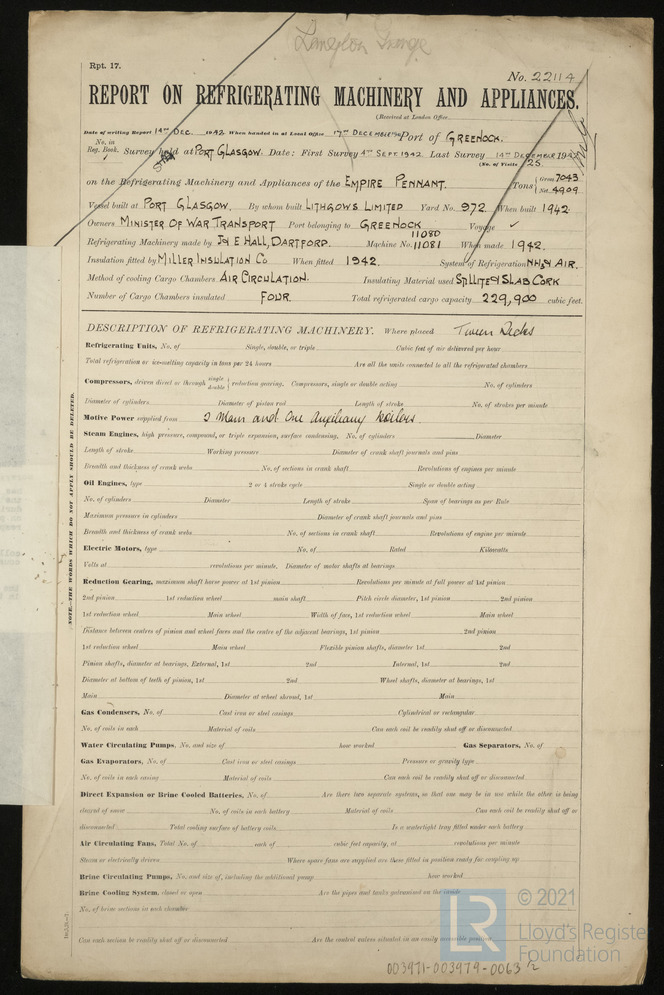 Langton Grange
Rpt. 17.
No. 22114
REPORT ON REFRIGERATING MACHINERY AND APPLIANCES.
(Received at London Office
Date of writing Report 14th DEC. 1942 When handed in at Local Office 17th DECEMBER 1942 Port of GREENOCK.
No. in Reg. Book. Survey held at PORT GLASGOW. Date: First Survey 4th SEPT 1942 Last Survey 14th DECEMBER 1942
(No. of Visits 25.
on the Refrigerating Machinery and Appliances of the EMPIRE PENNANT. Tons { Gross 7043 Net 4909
Vessel built at PORT GLASGOW. By whom built LITHGOWS LIMITED Yard No. 972. When built 1942.
Owners MINISTER OF WAR TRANSPORT Port belonging to GREENOCK Voyage ✓
Refrigerating Machinery made by J & E HALL, DARTFORD. Machine No. 11080 11081 When made 1942.
Insulation fitted by MILLER INSULATION Co When fitted 1942. System of Refrigeration NH3 & AIR.
Method of cooling Cargo Chambers AIR CIRCULATION. Insulating Material used STILLITE & SLAB CORK
Number of Cargo Chambers insulated FOUR. Total refrigerated cargo capacity 229,900 cubic feet.
DESCRIPTION OF REFRIGERATING MACHINERY. Where placed Tween Decks
Refrigerating Units, No. of Single, double, or triple Cubic feet of air delivered per hour
Total refrigeration or ice-melting capacity in tons per 24 hours Are all the units connected to all the refrigerated chambers
Compressors, driven direct or through { single double } reduction gearing. Compressors, single or double acting No. of cylinders
Diameter of cylinders Diameter of piston rod Length of stroke No. of strokes per minute
Motive Power supplied from 2 Main and One Auxiliary boilers.
Steam Engines, high pressure, compound, or triple expansion, surface condensing. No. of cylinders Diameter
Length of stroke Working pressure Diameter of crank shaft journals and pins
Breadth and thickness of crank webs No. of sections in crank shaft Revolutions of engines per minute
Oil Engines, type 2 or 4 stroke cycle Single or double acting
No. of cylinders Diameter Length of stroke Span of bearings as per Rule
Maximum pressure in cylinders Diameter of crank shaft journals and pins
Breadth and thickness of crank webs No. of sections in crank shaft Revolutions of engine per minute
Electric Motors, type No. of Rated Kilowatts
Volts at revolutions per minute. Diameter of motor shafts at bearings
Reduction Gearing, maximum shaft horse power at 1st pinion Revolutions per minute at full power at 1st pinion
2nd pinion 1st reduction wheel main shaft Pitch circle diameter, 1st pinion 2nd pinion
1st reduction wheel Main wheel Width of face, 1st reduction wheel Main wheel
Distance between centres of pinion and wheel faces and the centre of the adjacent bearings, 1st pinion 2nd pinion
1st reduction wheel Main wheel Flexible pinion shafts, diameter 1st 2nd
Pinion shafts, diameter at bearings, External, 1st 2nd Internal, 1st 2nd
Diameter at bottom of teeth of pinion, 1st 2nd Wheel shafts, diameter at bearings, 1st
Main Diameter at wheel shroud, 1st Main
Gas Condensers, No. of Cast iron or steel casings Cylindrical or rectangular
No. of coils in each Material of coils Can each coil be readily shut off or disconnected
Water Circulating Pumps, No. and size of how worked Gas Separators, No. of
Gas Evaporators, No. of Cast iron or steel casings Pressure or gravity type
No. of coils in each casing Material of coils Can each coil be readily shut off or disconnected
Direct Expansion or Brine Cooled Batteries, No. of Are there two separate systems, so that one may be in use while the other is being
cleared of snow No. of coils in each battery Material of coils Can each coil be readily shut off or
disconnected Total cooling surface of battery coils Is a watertight tray fitted under each battery
Air Circulating Fans, Total No. of each of cubic feet capacity, at revolutions per minute
Steam or electrically driven Where spare fans are supplied are these fitted in position ready for coupling up
Brine Circulating Pumps, No. and size of, including the additional pump how worked
Brine Cooling System, closed or open Are the pipes and tanks galvanised on the inside
No. of brine sections in each chamber
Can each section be readily shut off or disconnected Are the control valves situated in an easily accessible position
NOTE.—THE WORDS WHICH DO NOT APPLY SHOULD BE DELETED.
© 2021
LR
Lloyd's Register
Foundation
003971-003979-0063 1/2